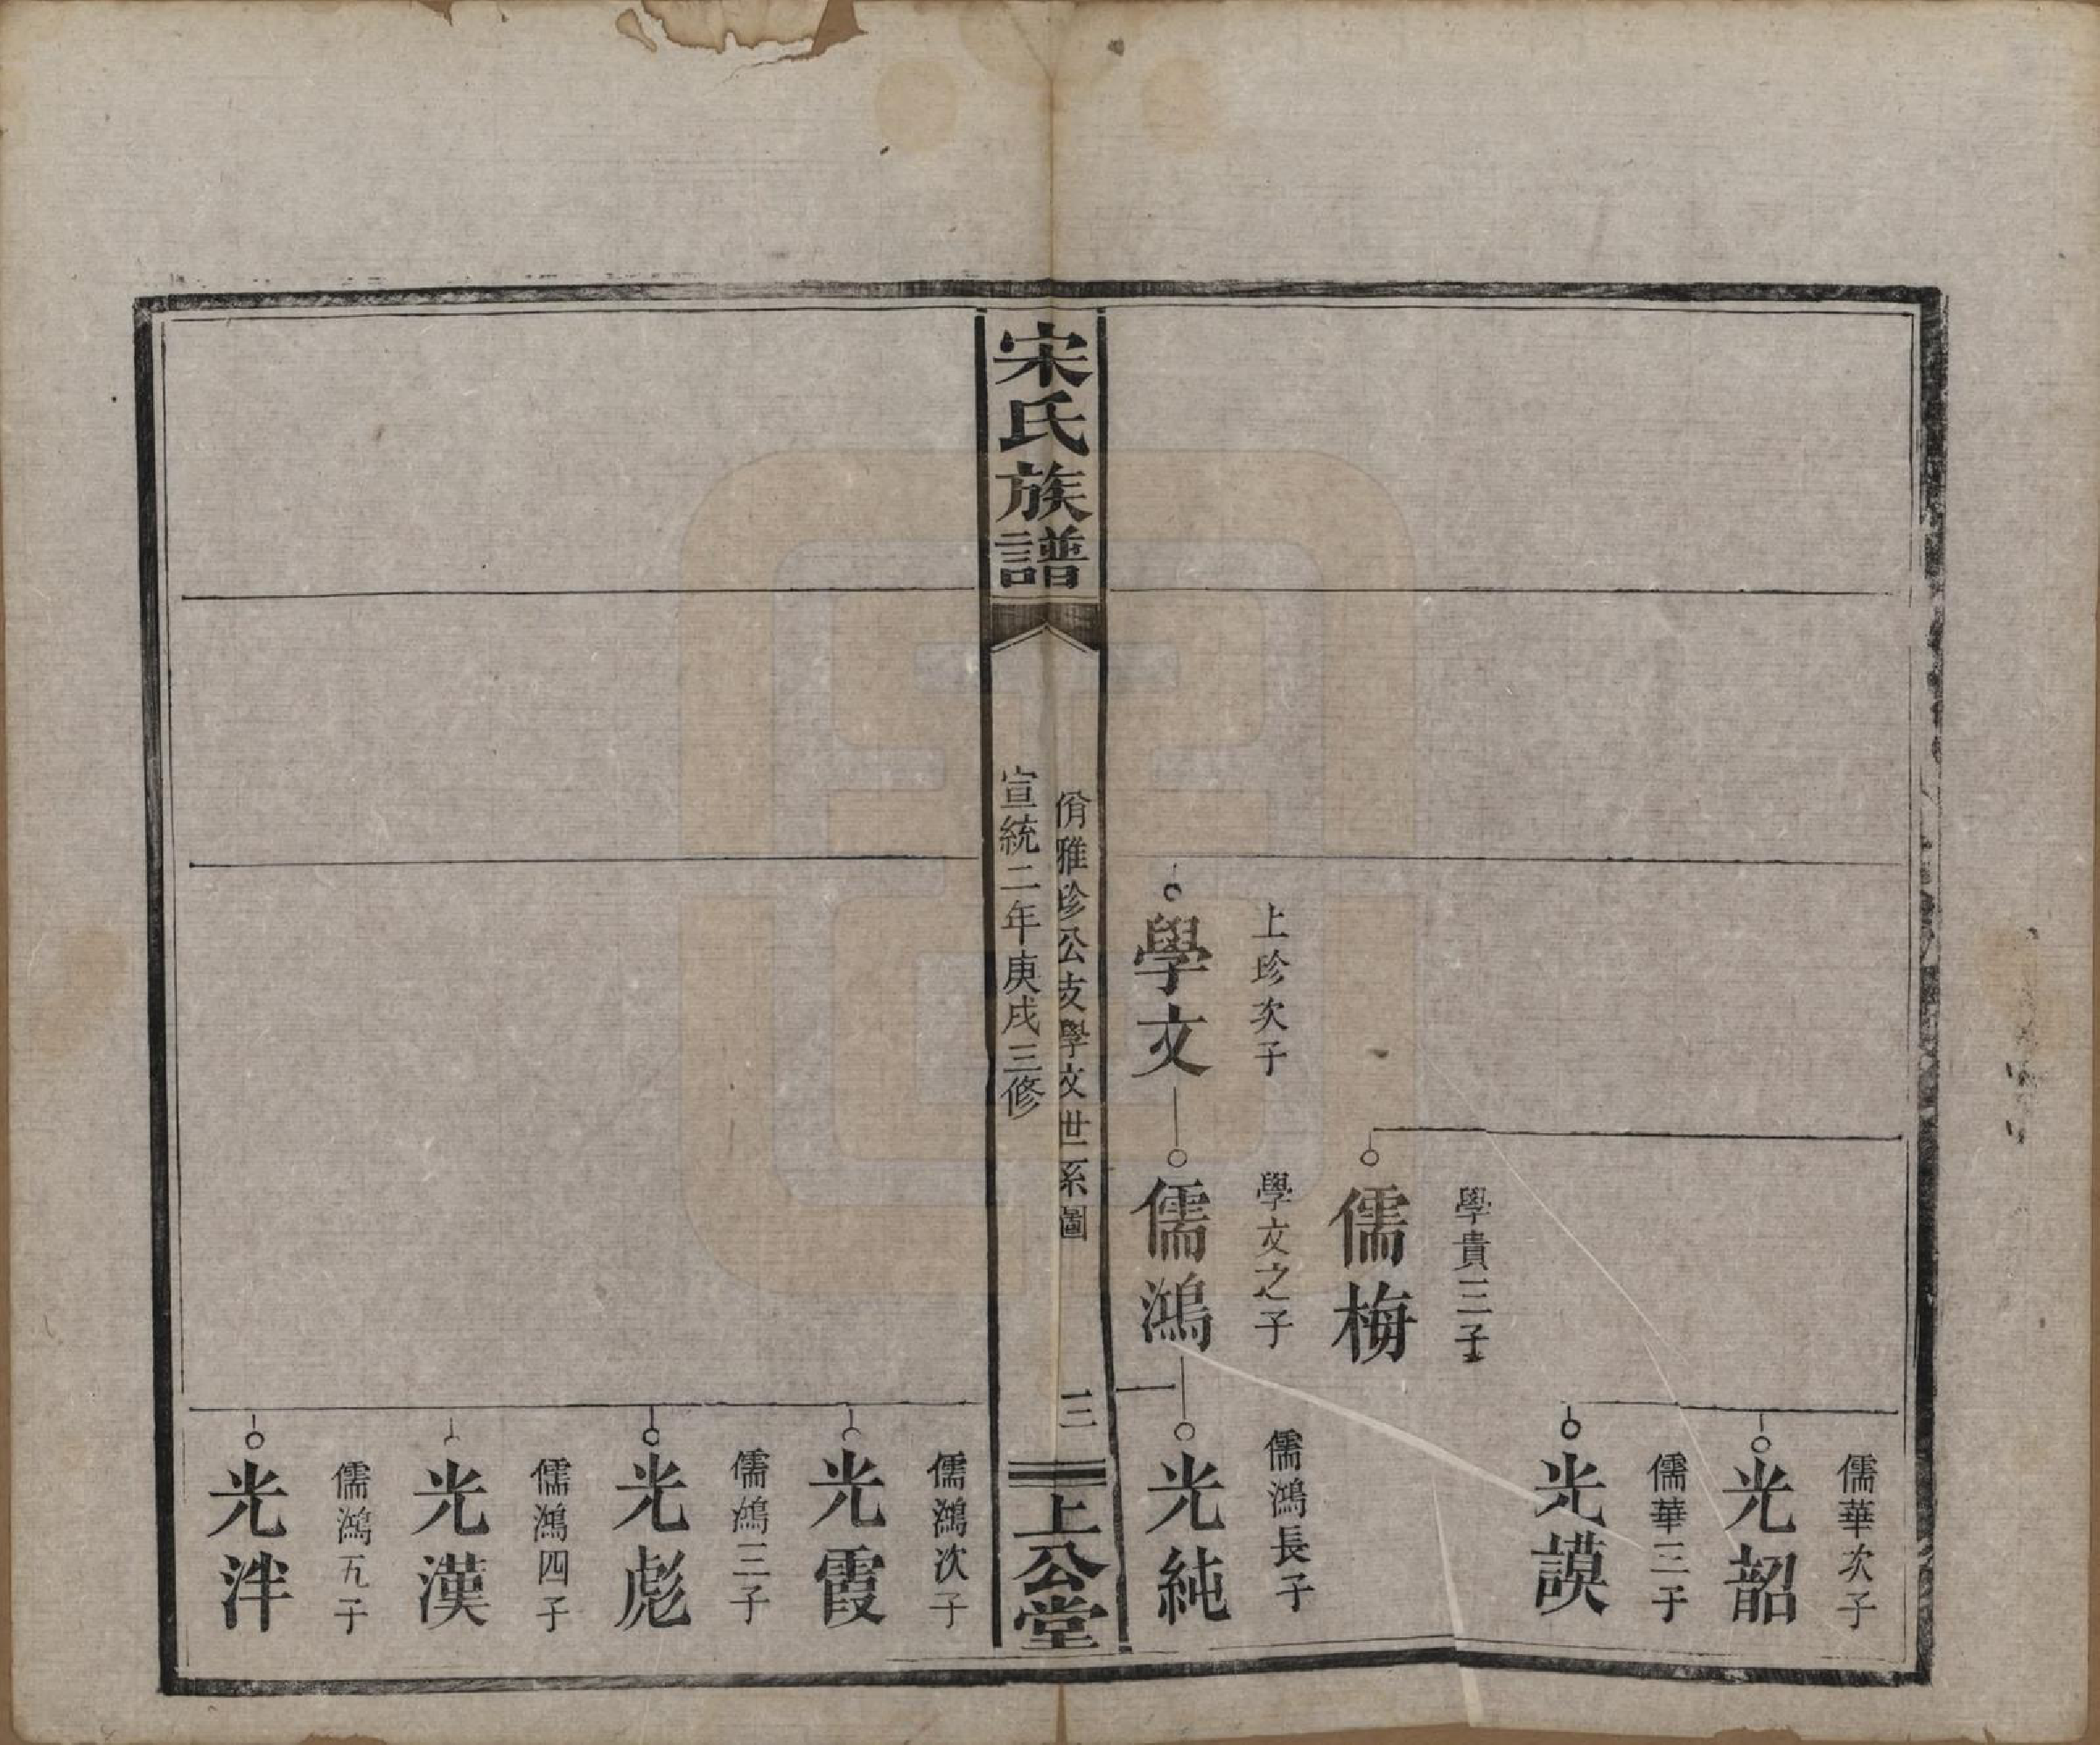 儒華次子
光韶
儒華三子
光謨
學貴三子
儒梅
上珍次子
學文
學文之子
儒鴻
儒鴻長子
光純
宋氏族譜
佾雅珍公支學文世系圖
宣統二年庚戌三修
三
上公堂
儒鴻次子
光霞
儒鴻三子
光彪
儒鴻四子
光漢
儒鴻五子
光泮